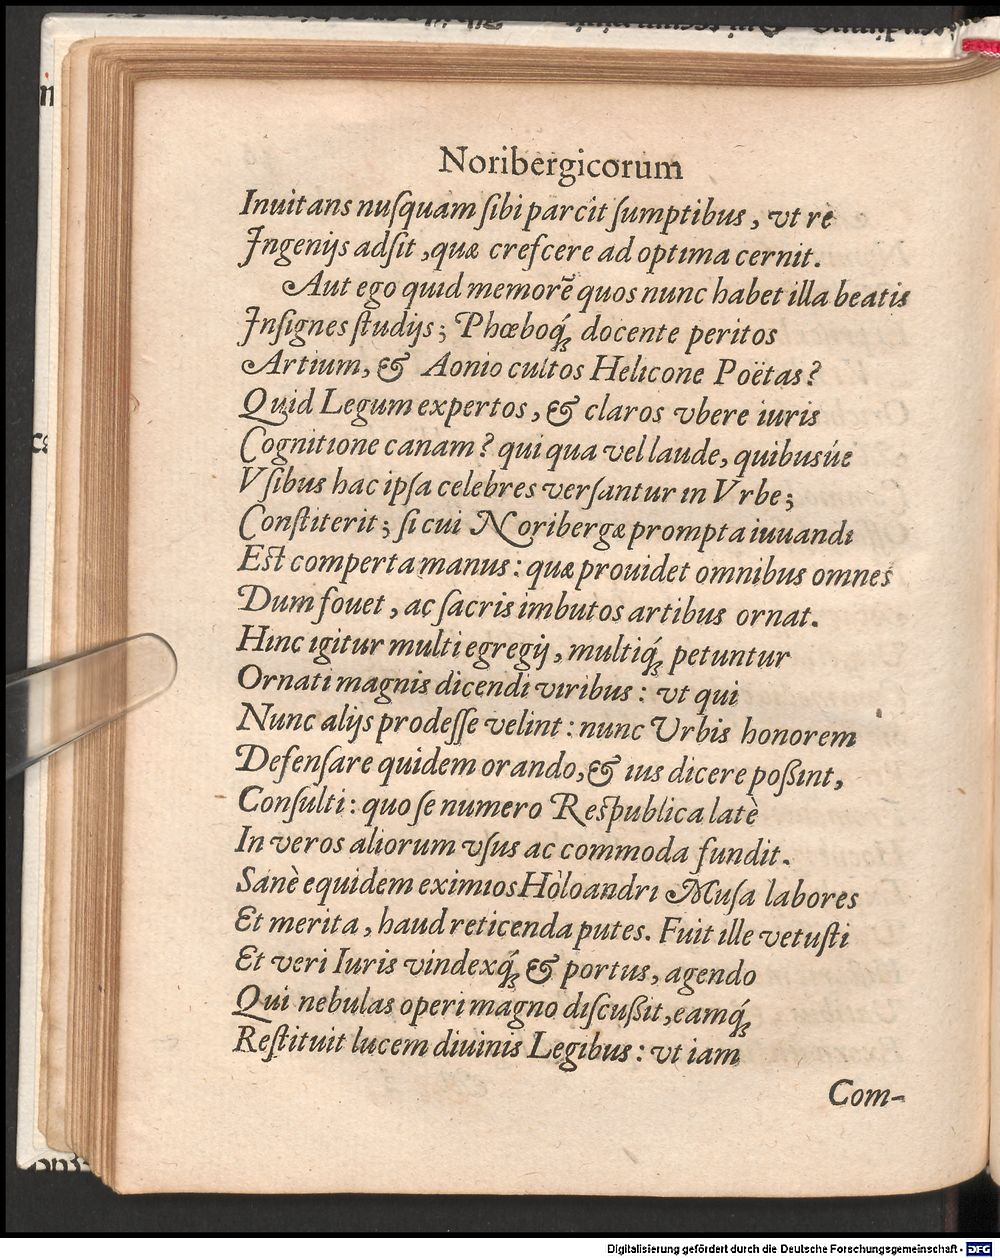 Noribergicorum
Inuitans nuſquam ſibi parcit ſumptibus, vt re
Ingenijs adſit, quæ creſcere ad optima cernit.
Aut ego quid memorē quos nunc habet illa beatis
Inſignes ſtudijs; Phœboq́; docente peritos
Artium, & Aonio cultos Helicone Poëtas?
Quid Legum expertos, & claros vbere iuris
Cognitione canam? qui qua vel laude, quibusúe
Vſibus hac ipſa celebres verſantur in Vrbe;
Conſtiterit; ſi cui Noribergæ prompta iuuandi
Est comperta manus: quæ prouidet omnibus omnes
Dum fouet, ac ſacris imbutos artibus ornat.
Hinc igitur multi egregij, multiq́; petuntur
Ornati magnis dicendi viribus: vt qui
Nunc alijs prodeſſe velint: nunc Urbis honorem
Defenſare quidem orando, & ius dicere poßint,
Conſulti: quo ſe numero Respublica latè
In veros aliorum vſus ac commoda fundit.
Sanè equidem eximios Holoandri Muſa labores
Et merita, haud reticenda putes. Fuit ille vetuſti
Et veri Iuris vindexq́; & portus, agendo
Qui nebulas operi magno diſcußit, eamq́;
Reſtituit lucem diuinis Legibus: vt iam
Com-
Digitalisierung gefördert durch die Deutsche Forschungsgemeinschaft - DFG